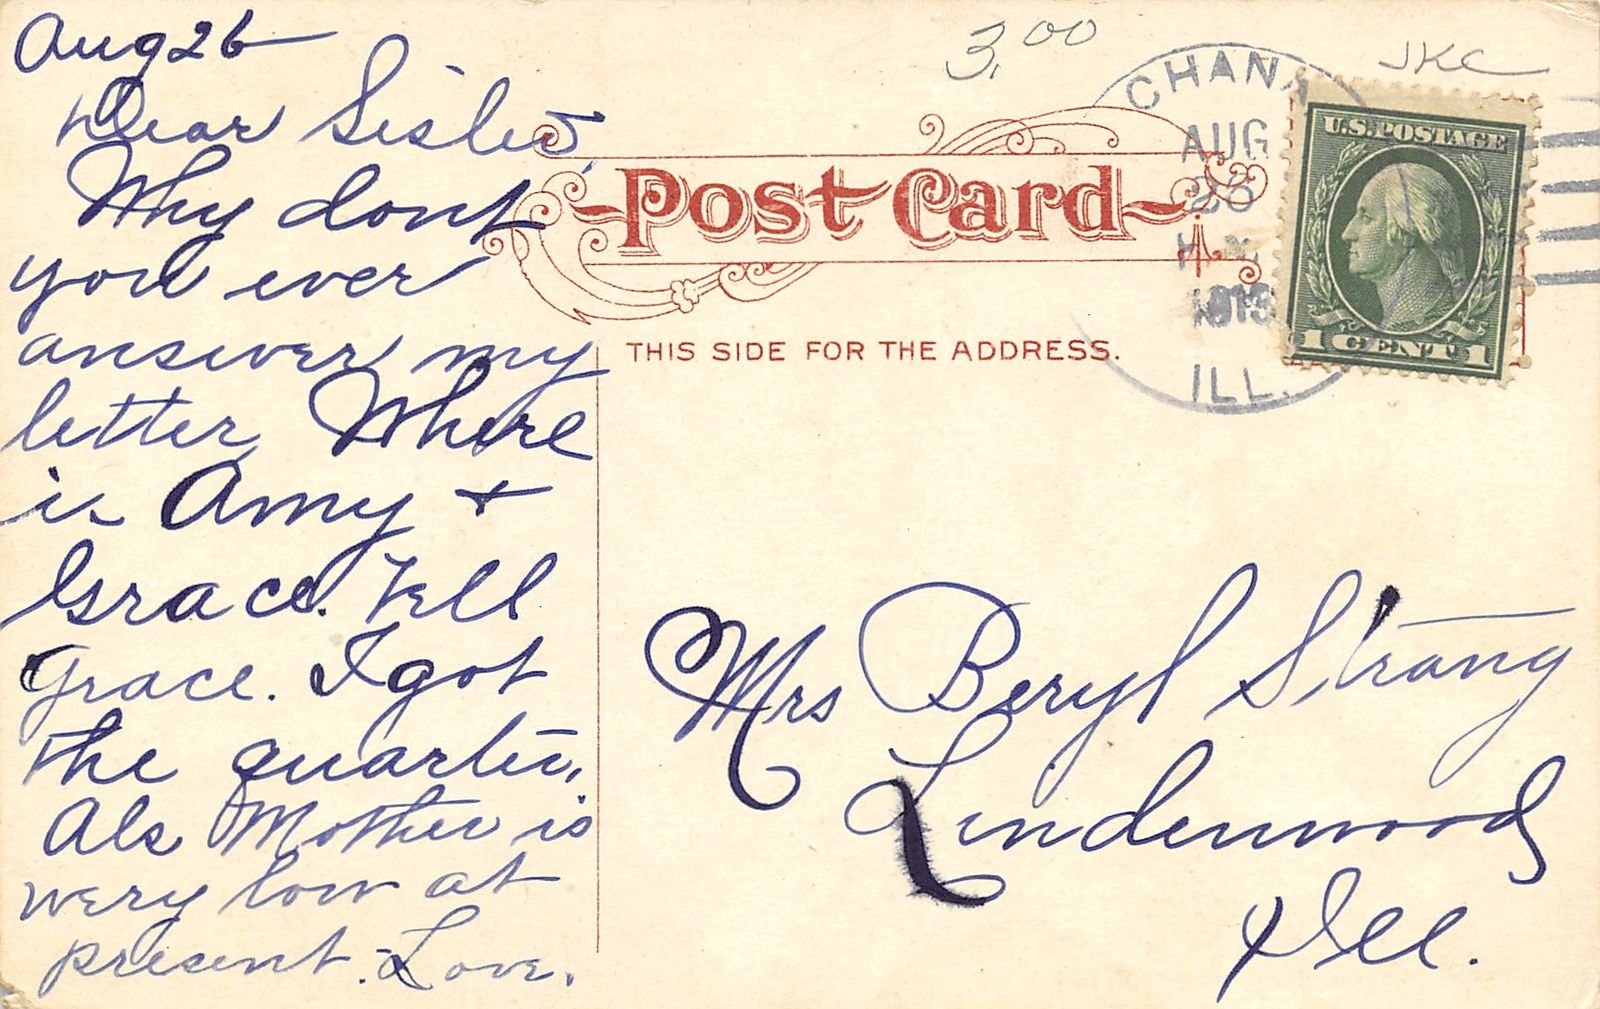 Aug 26
Dear Sister,
Why dont
you ever
answer my
letter Where
is Amy +
Grace. Tell
Grace. I got
the quarter,
Als Mother is
very low at
present. Love.
3.00
JKC
CHANA
AUG
26
1913
ILL.
U.S. POSTAGE
1 CENT 1
Post Card
THIS SIDE FOR THE ADDRESS.
Mrs Beryl Strang
Lindenwood
Ill.